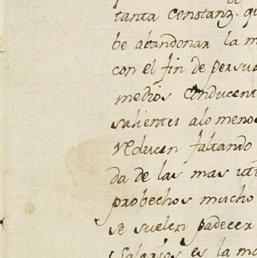 tanta constanz. qu
be abandonar la m
con el fin de persua
medios conducent
salientes alo menos
reducen faltando
da de las mas uti
probechos mucho
se suelen padecer
Salarios es la mo